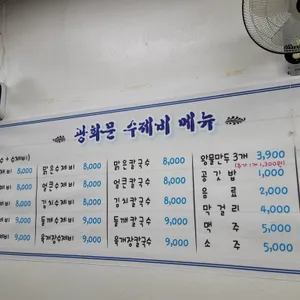 광화문 수제비 메뉴
수 + 수제비)
제비 8,000 맑은수제비 8,000 맑은칼국수 8,000 왕물만두 3개 3,900
제비 8,000 얼큰수제비 8,000 얼큰칼국수 8,000 공깃밥 1,000
제비 8,000 김치수제비 8,000 김치칼국수 8,000 음료 2,000
제비 9,000 들깨수제비 9,000 들깨칼국수 9,000 막걸리 4,000
제비 9,000 육개장수제비 9,000 육개장칼국수 9,000 맥주 5,000
소주 5,000